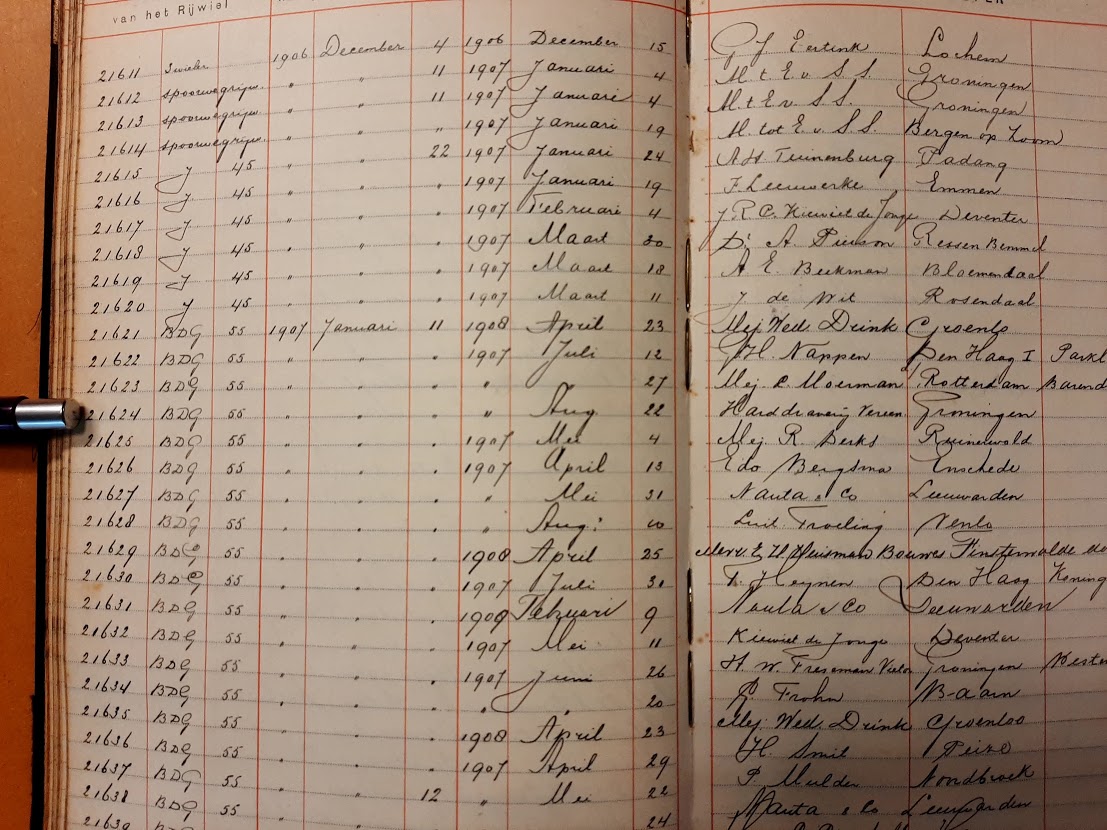 van het Rijwiel
21611 3 wieler 1906 December 4 1906 December 15 G J Eertink Lochem
21612 spoorwegrijw. " " 11 1907 Januari 4 M. t. E. v S. S. Groningen
21613 spoorwegrijw. " " 11 1907 Januari 4 M. t. E v. S S. Groningen
21614 spoorwegrijw " " " 1907 Januari 19 M. tot E. v. S S. Bergen op Zoom
21615 J 45 " " 22 1907 Januari 24 A H Tuinenburg Padang
21616 J 45 " " " 1907 Januari 19 F. Leeuwerke Emmen
21617 J 45 " " " 1907 Februari 4 J. R. C. Kiewiet de Jonge Deventer
21618 J 45 " " " 1907 Maart 30 Ds A. Pierson Ressen Bemmel
21619 J 45 " " " 1907 Maart 18 A E. Beekman Bloemendaal
21620 J 45 " " " 1907 Maart 11 J. de Wit Rosendaal
21621 BDG 55 1907 Januari 11 1908 April 23 Mej. Wed. Drink Groenlo
21622 BDG 55 " " " 1907 Juli 12 G. H. Nappen Den Haag I Parkl
21623 BDG 55 " " " " " 27 Mej. C. Moerman Rotterdam Barend
21624 BDG 55 " " " " Aug. 22 Harddraverij Vereen. Groningen
21625 BDG 55 " " " 1907 Mei 4 Mej. R. Derks Ruinerwold
21626 BDG 55 " " " 1907 April 13 Edo Bergsma Enschede
21627 BDG 55 " " " " Mei 31 Nauta & Co Leeuwarden
21628 BDG 55 " " " " Aug: 10 Luit. Troeling Venlo
21629 BDG 55 " " " 1908 April 25 Mevr. E. H. Huisman Bouwes Finsterwolde
21630 BDG 55 " " " 1907 Juli 31 F. Heynen Den Haag Koning
21631 BDG 55 " " " 1909 Februari 9 Nauta & Co Leeuwarden
21632 BDG 55 " " " 1907 Mei 11 Kiewiet de Jonge Deventer
21633 BDG 55 " " " 1907 Juni 26 H. W. Freseman Groningen
21634 BDG 55 " " " " " 20 Frohn Baarn
21635 BDG 55 " " " 1908 April 23 Mej. Wed. Drink Groenloo
21636 BDG 55 " " " 1907 April 29 H. Smit Peize
21637 BDG 55 " " " " Mei 22 P. Mulder Noordbroek
21638 BDG 55 " " 12 " 24 Nauta & Co Leeuwarden
21639